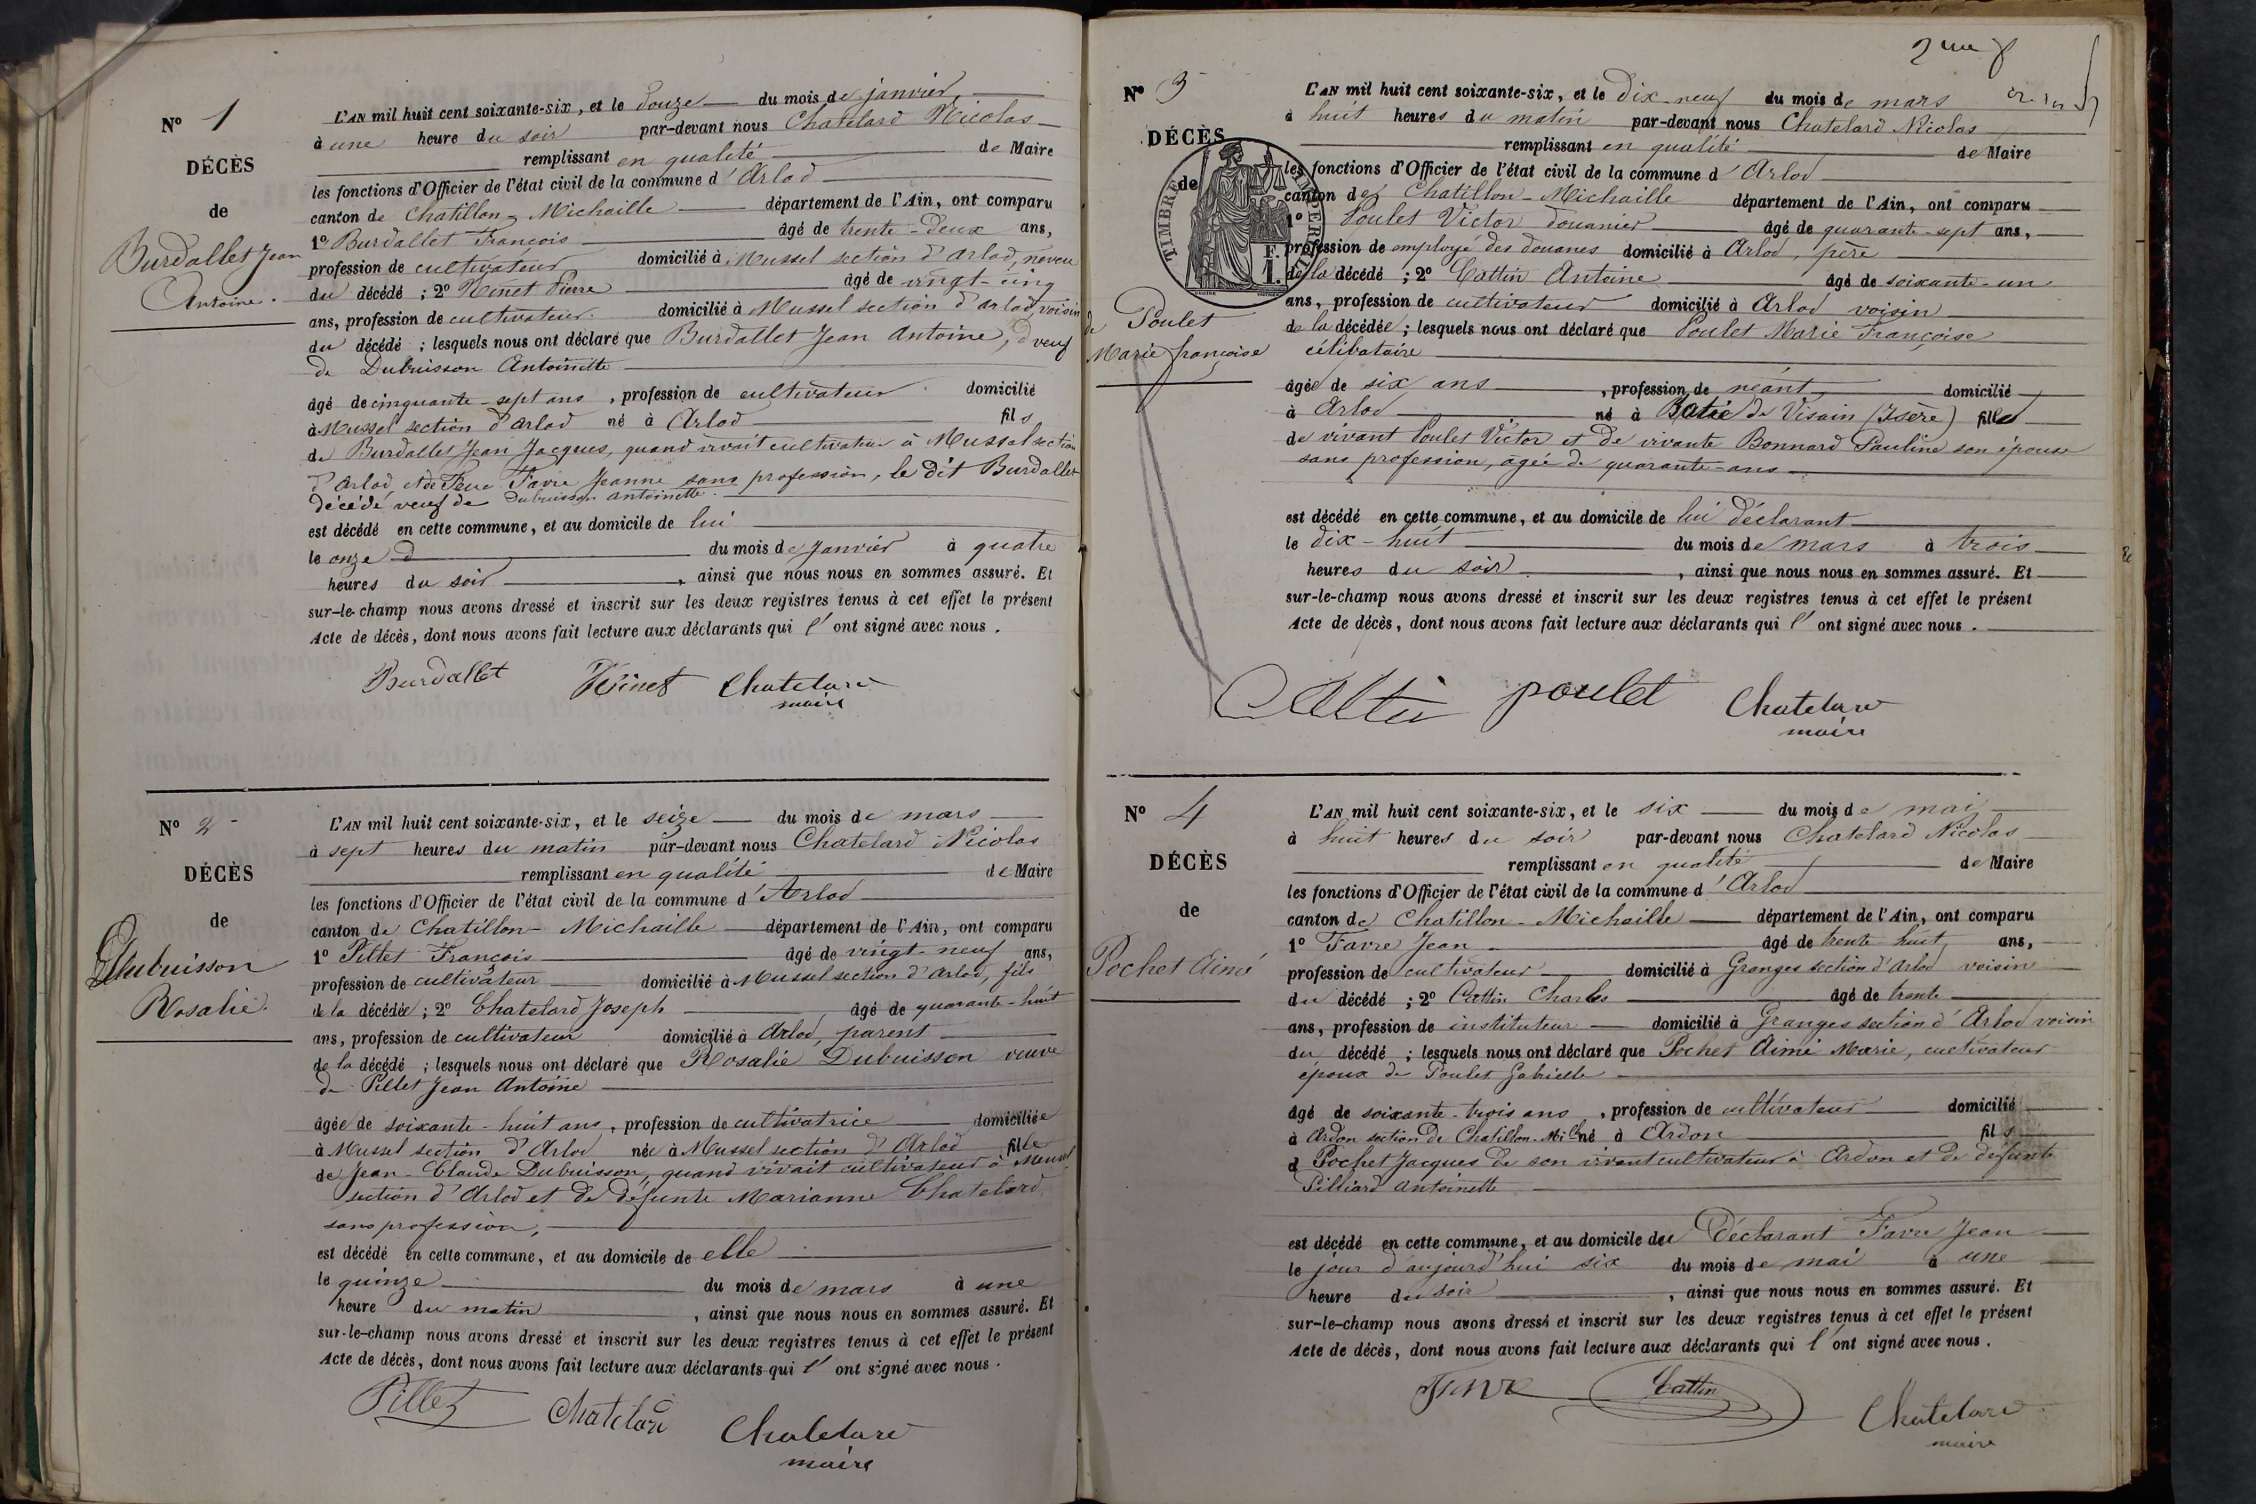 N° 1
DÉCÈS
de
Burdallet Jean
Antoine.
L'AN mil huit cent soixante-six, et le douze du mois de janvier,
à une heure du soir par-devant nous Chatelard Nicolas
remplissant en qualité de Maire
les fonctions d'Officier de l'état civil de la commune d'Arlod
canton de Chatillon-Michaille département de l'Ain, ont comparu
1° Burdallet François âgé de trente-deux ans,
profession de cultivateur domicilié à Mussel section d'Arlod, neveu
du décédé ; 2° Rinet Pierre âgé de vingt-cinq
ans, profession de cultivateur domicilié à Mussel section d'arlod, voisin
du décédé ; lesquels nous ont déclaré que Burdallet Jean Antoine, veuf
de Dubuisson Antoinette
âgé de cinquante-sept ans, profession de cultivateur domicilié
à Mussel section d'Arlod né à Arlod fils
de Burdallet Jean Jacques, quand vivait cultivateur à Mussel section
d'Arlod et de Feue Favre Jeanne sans profession, le dit Burdallet
décédé veuf de Dubuisson Antoinette.
est décédé en cette commune, et au domicile de lui
le onze du mois de janvier à quatre
heures du soir, ainsi que nous nous en sommes assuré. Et
sur-le-champ nous avons dressé et inscrit sur les deux registres tenus à cet effet le présent
Acte de décès, dont nous avons fait lecture aux déclarants qui l'ont signé avec nous.
Burdallet Rinet Chatelard
maire
N° 2
DÉCÈS
de
Dubuisson
Rosalie.
L'AN mil huit cent soixante-six, et le seize du mois de mars
à sept heures du matin par-devant nous Chatelard Nicolas
remplissant en qualité de Maire
les fonctions d'Officier de l'état civil de la commune d'Arlod
canton de Chatillon-Michaille département de l'Ain, ont comparu
1° Pillet François âgé de vingt-neuf ans,
profession de cultivateur domicilié à Mussel section d'Arlod, fils
de la décédée ; 2° Chatelard Joseph âgé de quarante-huit
ans, profession de cultivateur domicilié à Arlod, parent
de la décédé ; lesquels nous ont déclaré que Rosalie Dubuisson veuve
de Pillet Jean Antoine
âgée de soixante-huit ans, profession de cultivatrice domiciliée
à Mussel section d'Arlod née à Mussel section d'Arlod fille
de Jean-Claude Dubuisson, quand vivait cultivateur à Mussel
section d'Arlod et de défunte Marianne Chatelard
sans profession,
est décédé en cette commune, et au domicile de elle
le quinze du mois de mars à une
heure du matin, ainsi que nous nous en sommes assuré. Et
sur-le-champ nous avons dressé et inscrit sur les deux registres tenus à cet effet le présent
Acte de décès, dont nous avons fait lecture aux déclarants qui l'ont signé avec nous.
Pillet Chatelard Chatelard
maire
N° 3
DÉCÈS
de
TIMBRE IMPERIAL
1 F.
de Poulet
Marie françoise
L'AN mil huit cent soixante-six, et le dix-neuf du mois de mars
à huit heures du matin par-devant nous Chatelard Nicolas
remplissant en qualité de Maire
les fonctions d'Officier de l'état civil de la commune d'Arlod
canton de Chatillon-Michaille département de l'Ain, ont comparu
1° Poulet Victor douanier âgé de quarante-sept ans,
profession de employé des douanes domicilié à Arlod, père
de la décédé ; 2° Cattin Antoine âgé de soixante-un
ans, profession de cultivateur domicilié à Arlod voisin
de la décédée ; lesquels nous ont déclaré que Poulet Marie Françoise
célibataire
âgée de six ans, profession de néant domicilié
à Arlod né à Batie de Visain (Isère) fille
de vivant Poulet Victor et de vivante Bonnard Pauline son épouse
sans profession, agée de quarante-ans
est décédé en cette commune, et au domicile de lui déclarant
le dix-huit du mois de mars à trois
heures du soir, ainsi que nous nous en sommes assuré. Et
sur-le-champ nous avons dressé et inscrit sur les deux registres tenus à cet effet le présent
Acte de décès, dont nous avons fait lecture aux déclarants qui l'ont signé avec nous.
Cattin poulet Chatelard
maire
N° 4
DÉCÈS
de
Pochet Aimé
L'AN mil huit cent soixante-six, et le six du mois de mai
à huit heures du soir par-devant nous Chatelard Nicolas
remplissant en qualité de Maire
les fonctions d'Officier de l'état civil de la commune d'Arlod
canton de Chatillon-Michaille département de l'Ain, ont comparu
1° Favre Jean âgé de trente huit ans,
profession de cultivateur domicilié à Granges section d'Arlod voisin
du décédé ; 2° Cattin Charles âgé de trente
ans, profession de instituteur domicilié à Granges section d'Arlod voisin
du décédé ; lesquels nous ont déclaré que Pochet Aimé Marie, cultivateur
époux de Poulet Gabrielle
âgé de soixante-trois ans, profession de cultivateur domicilié
à Ardon section de Chatillon-Mi né à Ardon fils
d Pochet Jacques de son vivant cultivateur à Ardon et de défunte
Pilliard Antoinette
est décédé en cette commune, et au domicile du Déclarant Favre Jean
le jour d'aujourd'hui six du mois de mai à une
heure du soir, ainsi que nous nous en sommes assuré. Et
sur-le-champ nous avons dressé et inscrit sur les deux registres tenus à cet effet le présent
Acte de décès, dont nous avons fait lecture aux déclarants qui l'ont signé avec nous.
Favre Cattin Chatelard
maire